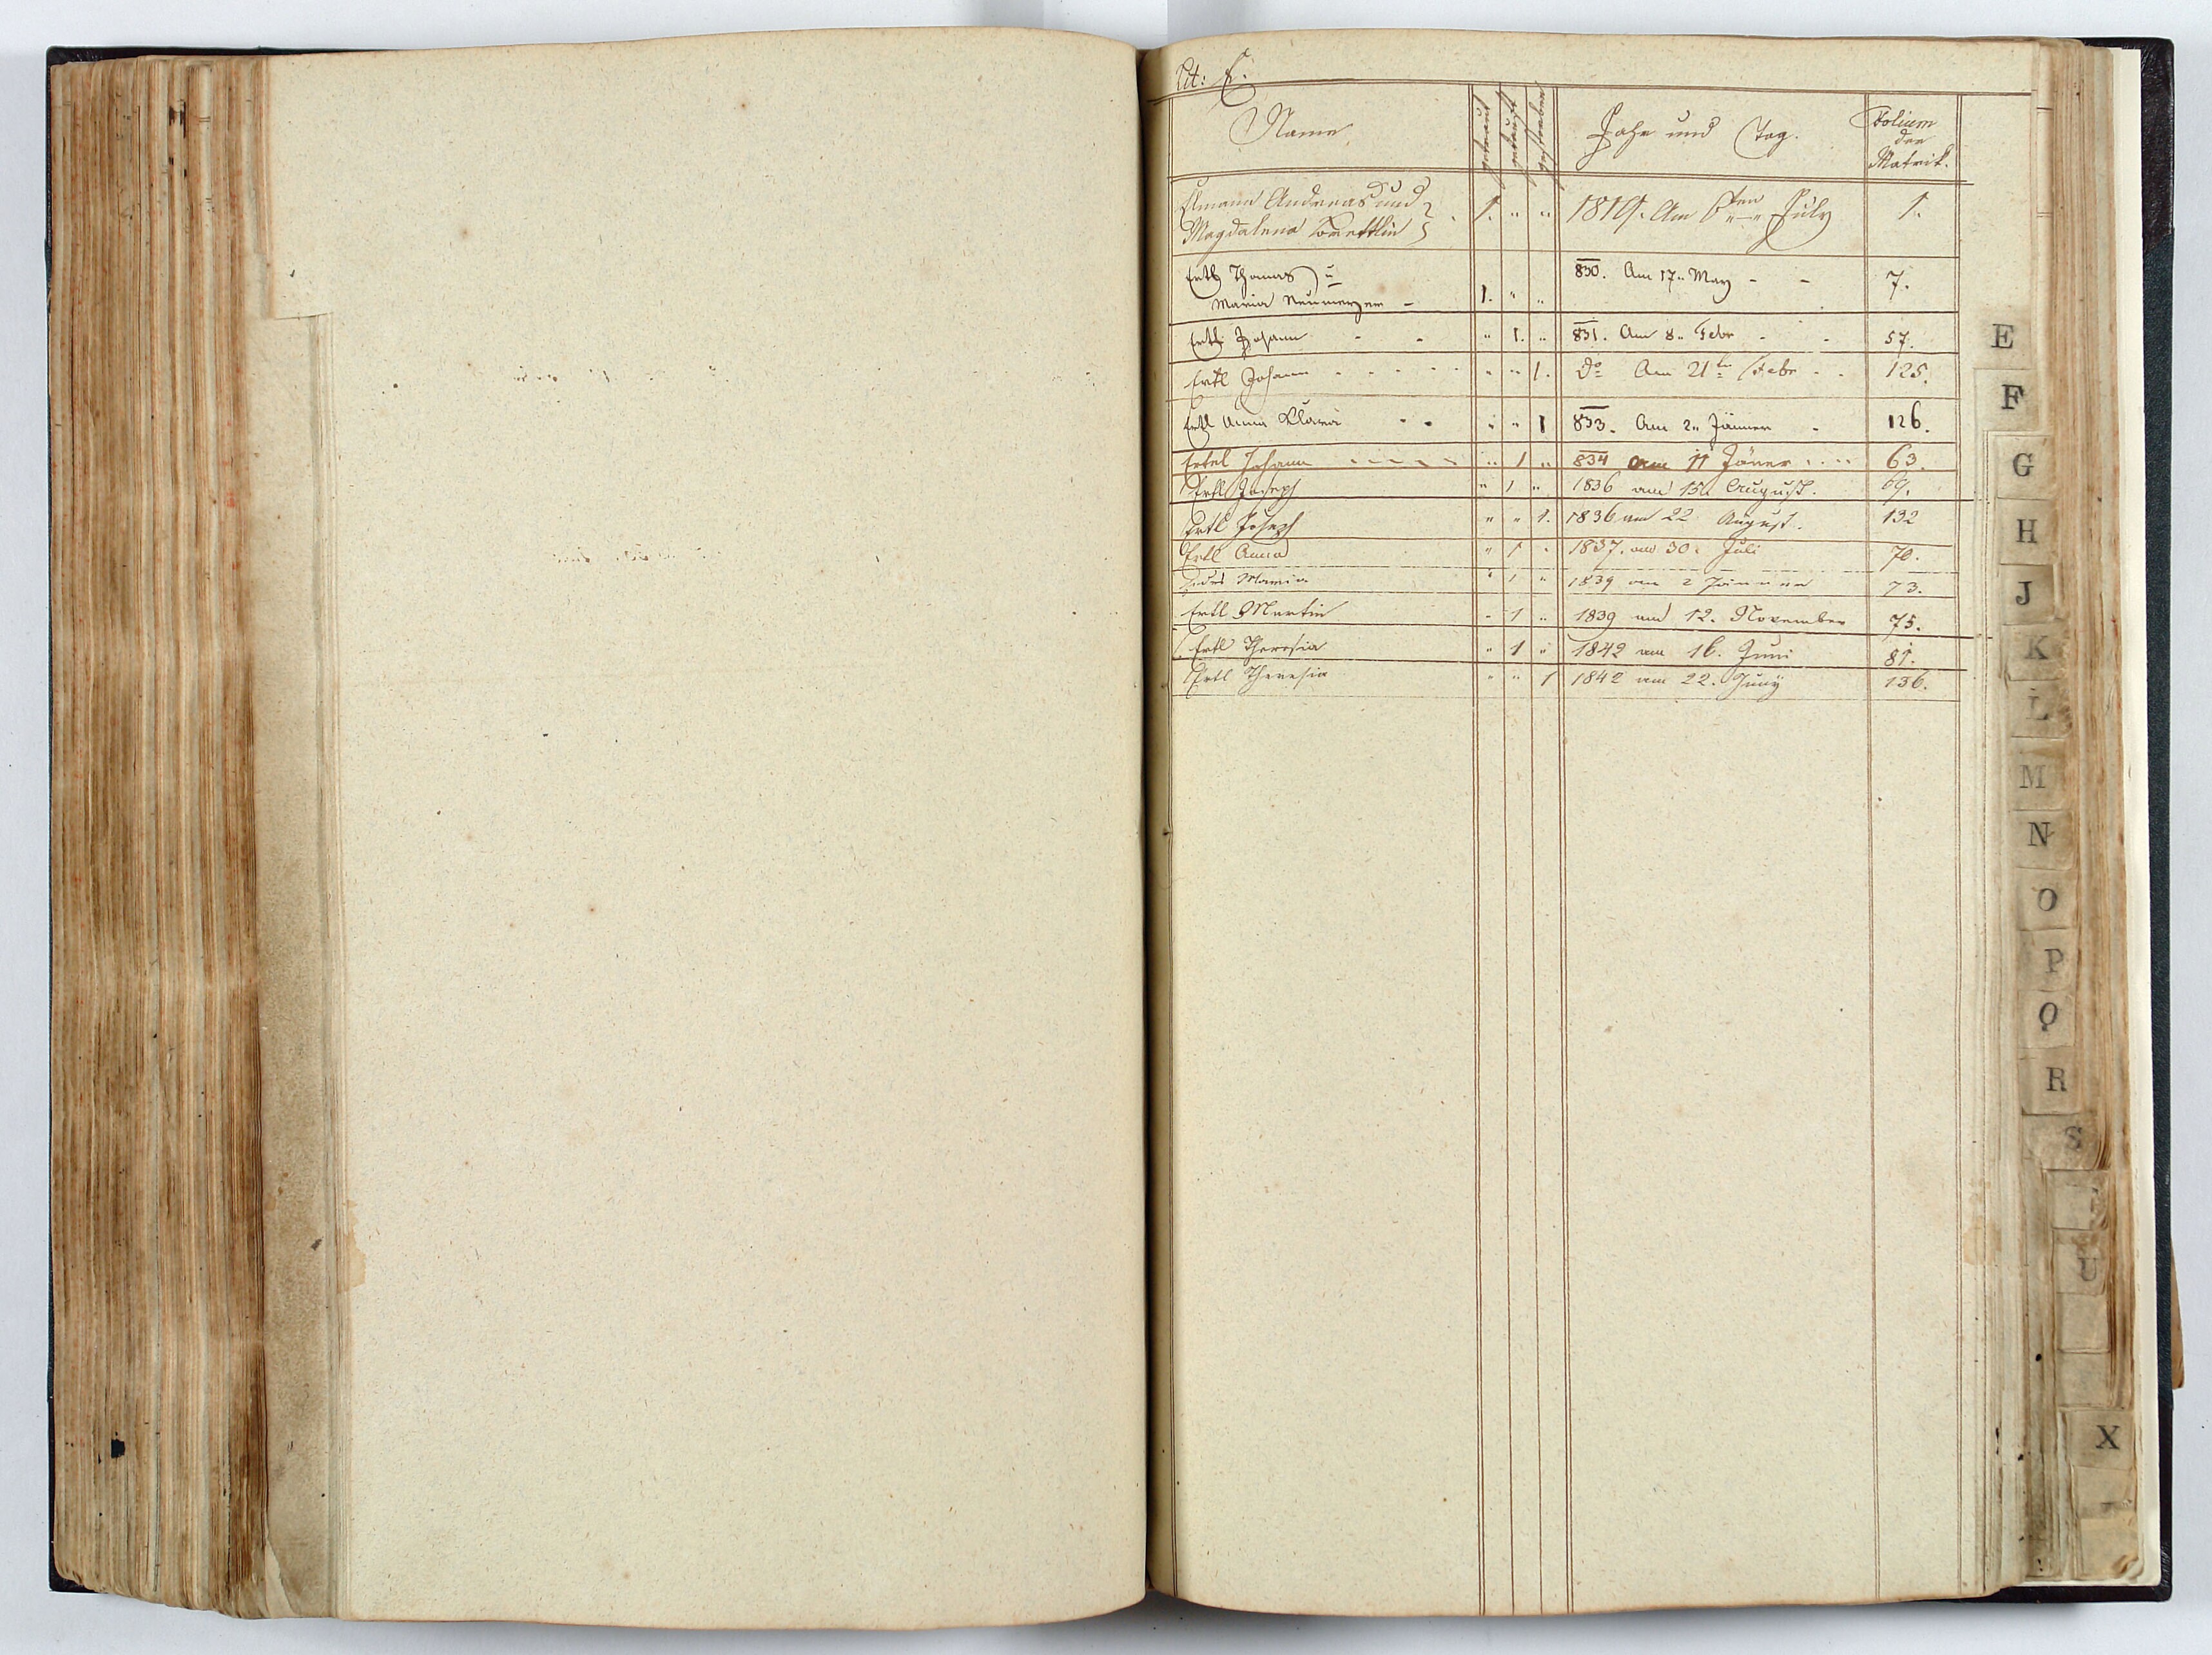 Lit: E.
Name getraut getauft gestorben Jahr und Tag. Folium der Matrik.
Andreas und
Magdalena 1. " " 1819. Am 6ten July 1.
Ertl Thomas u
Maria 1. " " 830. Am 17. May - - 7.
Ertl Johann - - " 1. " 831. Am 8. Febr - - 57.
Ertl Johann " " 1. do Am 21ten Febr . . 125.
Ertl Anna Maria " " 1 833. Am 2. Jänner - 126.
Ertel Johann " 1 " 834 am 11 Jäner 63.
Ertl Joseph " 1 " 1836 am 15. August. 69.
Ertl Joseph " " 1. 1836 am 22 August. 132
Ertl Anna " 1 " 1837. am 30. Juli 70.
Maria " 1 " 1839 am 2 Jänner 73.
Ertl Martin " 1 " 1839 am 12. November 75.
Ertl Theresia " 1 " 1842 am 16. Juni 81.
Ertl Theresia " " 1 1842 am 22. Juny 136.
E
F
G
H
J
K
L
M
N
O
P
Q
R
S
U
X